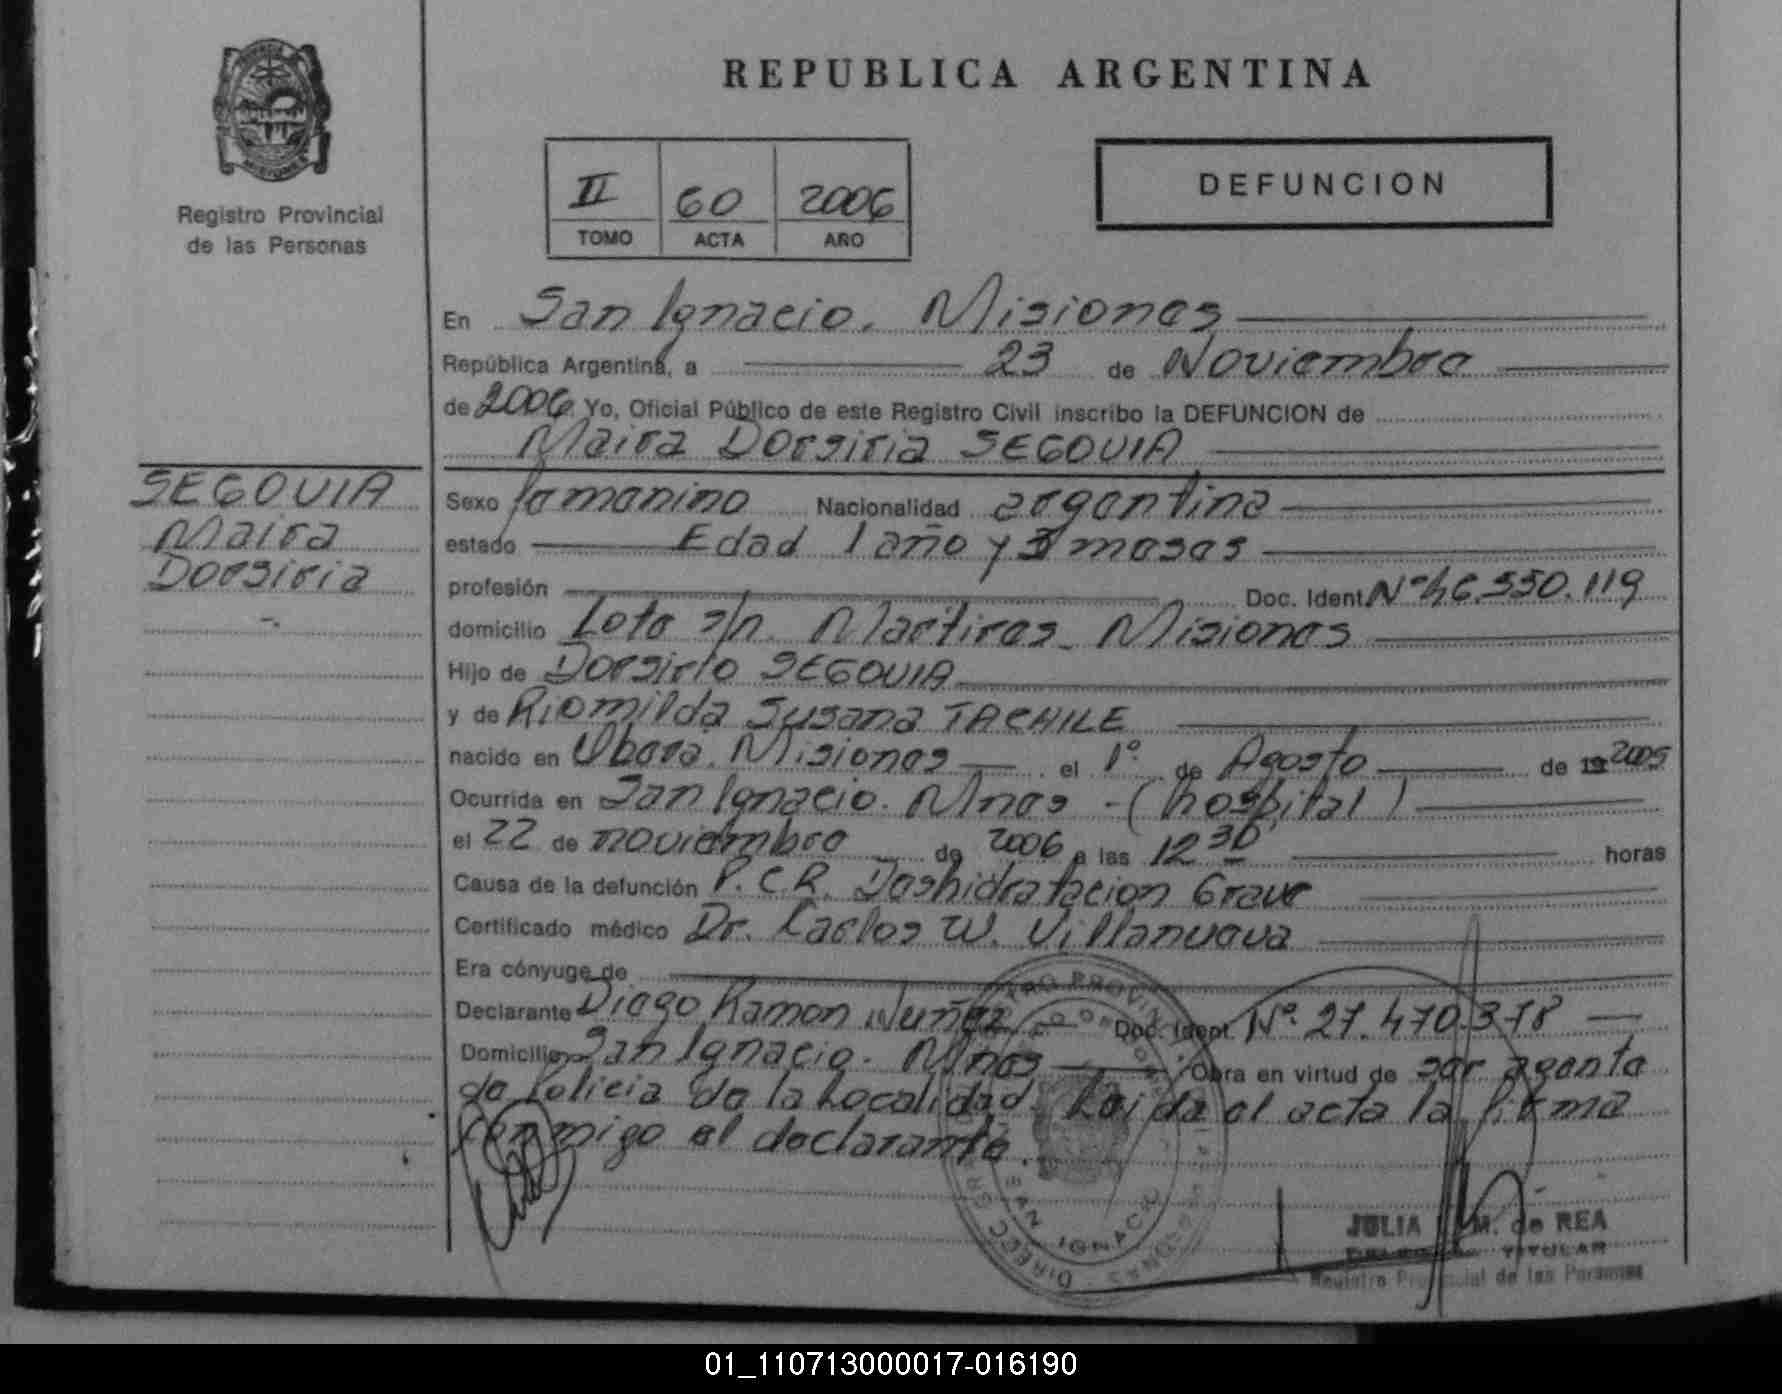 REPUBLICA ARGENTINA
Registro Provincial
de las Personas
MISIONES
II 60 2006
TOMO ACTA AÑO
DEFUNCION
En San Ignacio. Misiones
República Argentina, a 23 de Noviembre
de 2006 Yo, Oficial Público de este Registro Civil inscribo la DEFUNCION de
Maira Dorsiria SEGOVIA
SEGOVIA
Maira
Dorsiria
Sexo femenino Nacionalidad argentina
estado Edad 1 año y 3 meses
profesión Doc. Ident. Nº 46.550.119
domicilio Lote s/n. Martires. Misiones
Hijo de Dorsirio SEGOVIA
y de Riomilda Susana TACHILE
nacido en Obera. Misiones el 1º de Agosto de 19 2005
Ocurrida en San Ignacio. Mnes - (hospital)
el 22 de noviembre de 2006 a las 12 30 horas
Causa de la defunción P.C.R. Deshidratacion Grave
Certificado médico Dr. Carlos W. Villanueva
Era cónyuge de
Declarante Diego Ramon Nuñez Doc. Ident. Nº. 27.470.378
Domicilio San Ignacio. Mnes Obra en virtud de ser agente
de Policia de la Localidad. Leida el acta la firma
conmigo el declarante.
SAN IGNACIO
JULIA M. de REA
TITULAR
Registro Provincial de las Personas
01_110713000017-016190